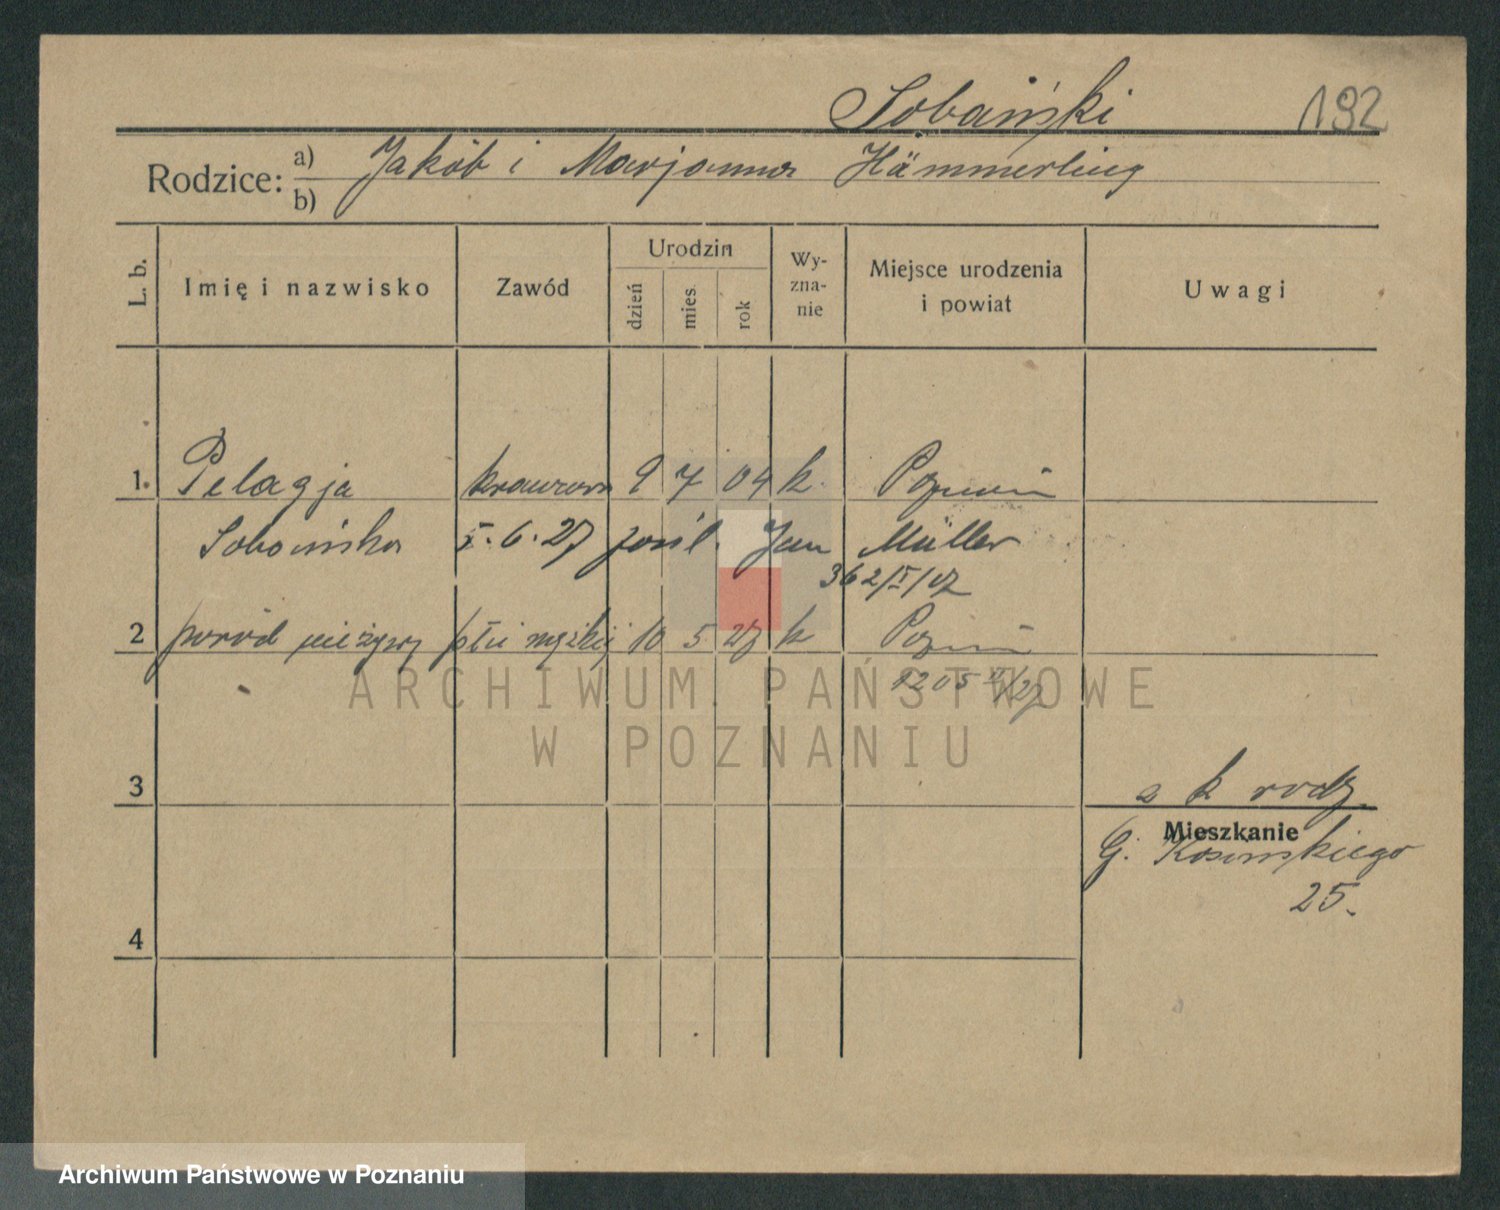 Sobański 192
Rodzice: a) Jakób i Marjanna Hämmerling
b)
L. b. Imię i nazwisko Zawód Urodzin Wy-zna-nie Miejsce urodzenia i powiat Uwagi
dzień mies. rok
1. Pelagja krawcowa 9 7 04 k. Poznań
Sobańska 5.6.27 zaśl. Jan Müller
362/I/07
2 poród nieżywy płci męskiej 10 5 27 k Poznań
1205 II/27
ARCHIWUM PAŃSTWOWE
W POZNANIU
3 a k rodz.
Mieszkanie
G. Kosinskiego
25.
4
Archiwum Państwowe w Poznaniu